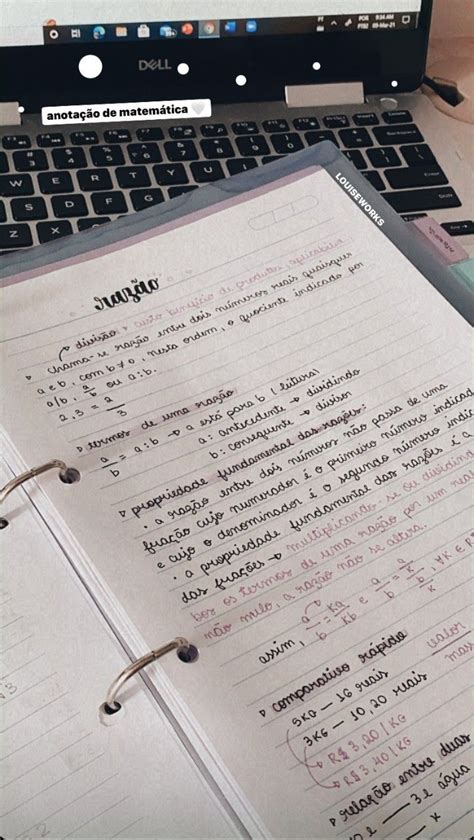 DELL
anotação de matemática
LOUISEWORKS
razão
divisão custo benefício de produtos,
chama-se razão entre dois números reais quaisquer
a e b, com b≠0, nesta ordem, o quociente indicado por
a/b, a/b ou a:b.
2:3 = 2/3
termos de uma razão
a/b = a:b → a está para b (leitura)
a: antecedente → dividindo
b: consequente → divisor
propriedade fundamental das razões:
· a razão entre dois números não passa de uma
fração cujo numerador é o primeiro número indicad
e cujo o denominador é o segundo número indic
· a propriedade fundamental das razões é a
das frações → multiplicando-se ou dividin
os termos de uma razão por um
não nulo, a razão não se altera.
assim, a/b = Ka/Kb e a/b =
comparativo rápido
5KG — 16 reais
3KG — 10,20 reais
R$ 3,20/KG
R$ 3,40/KG
valor
mas
relação entre duas
3l água